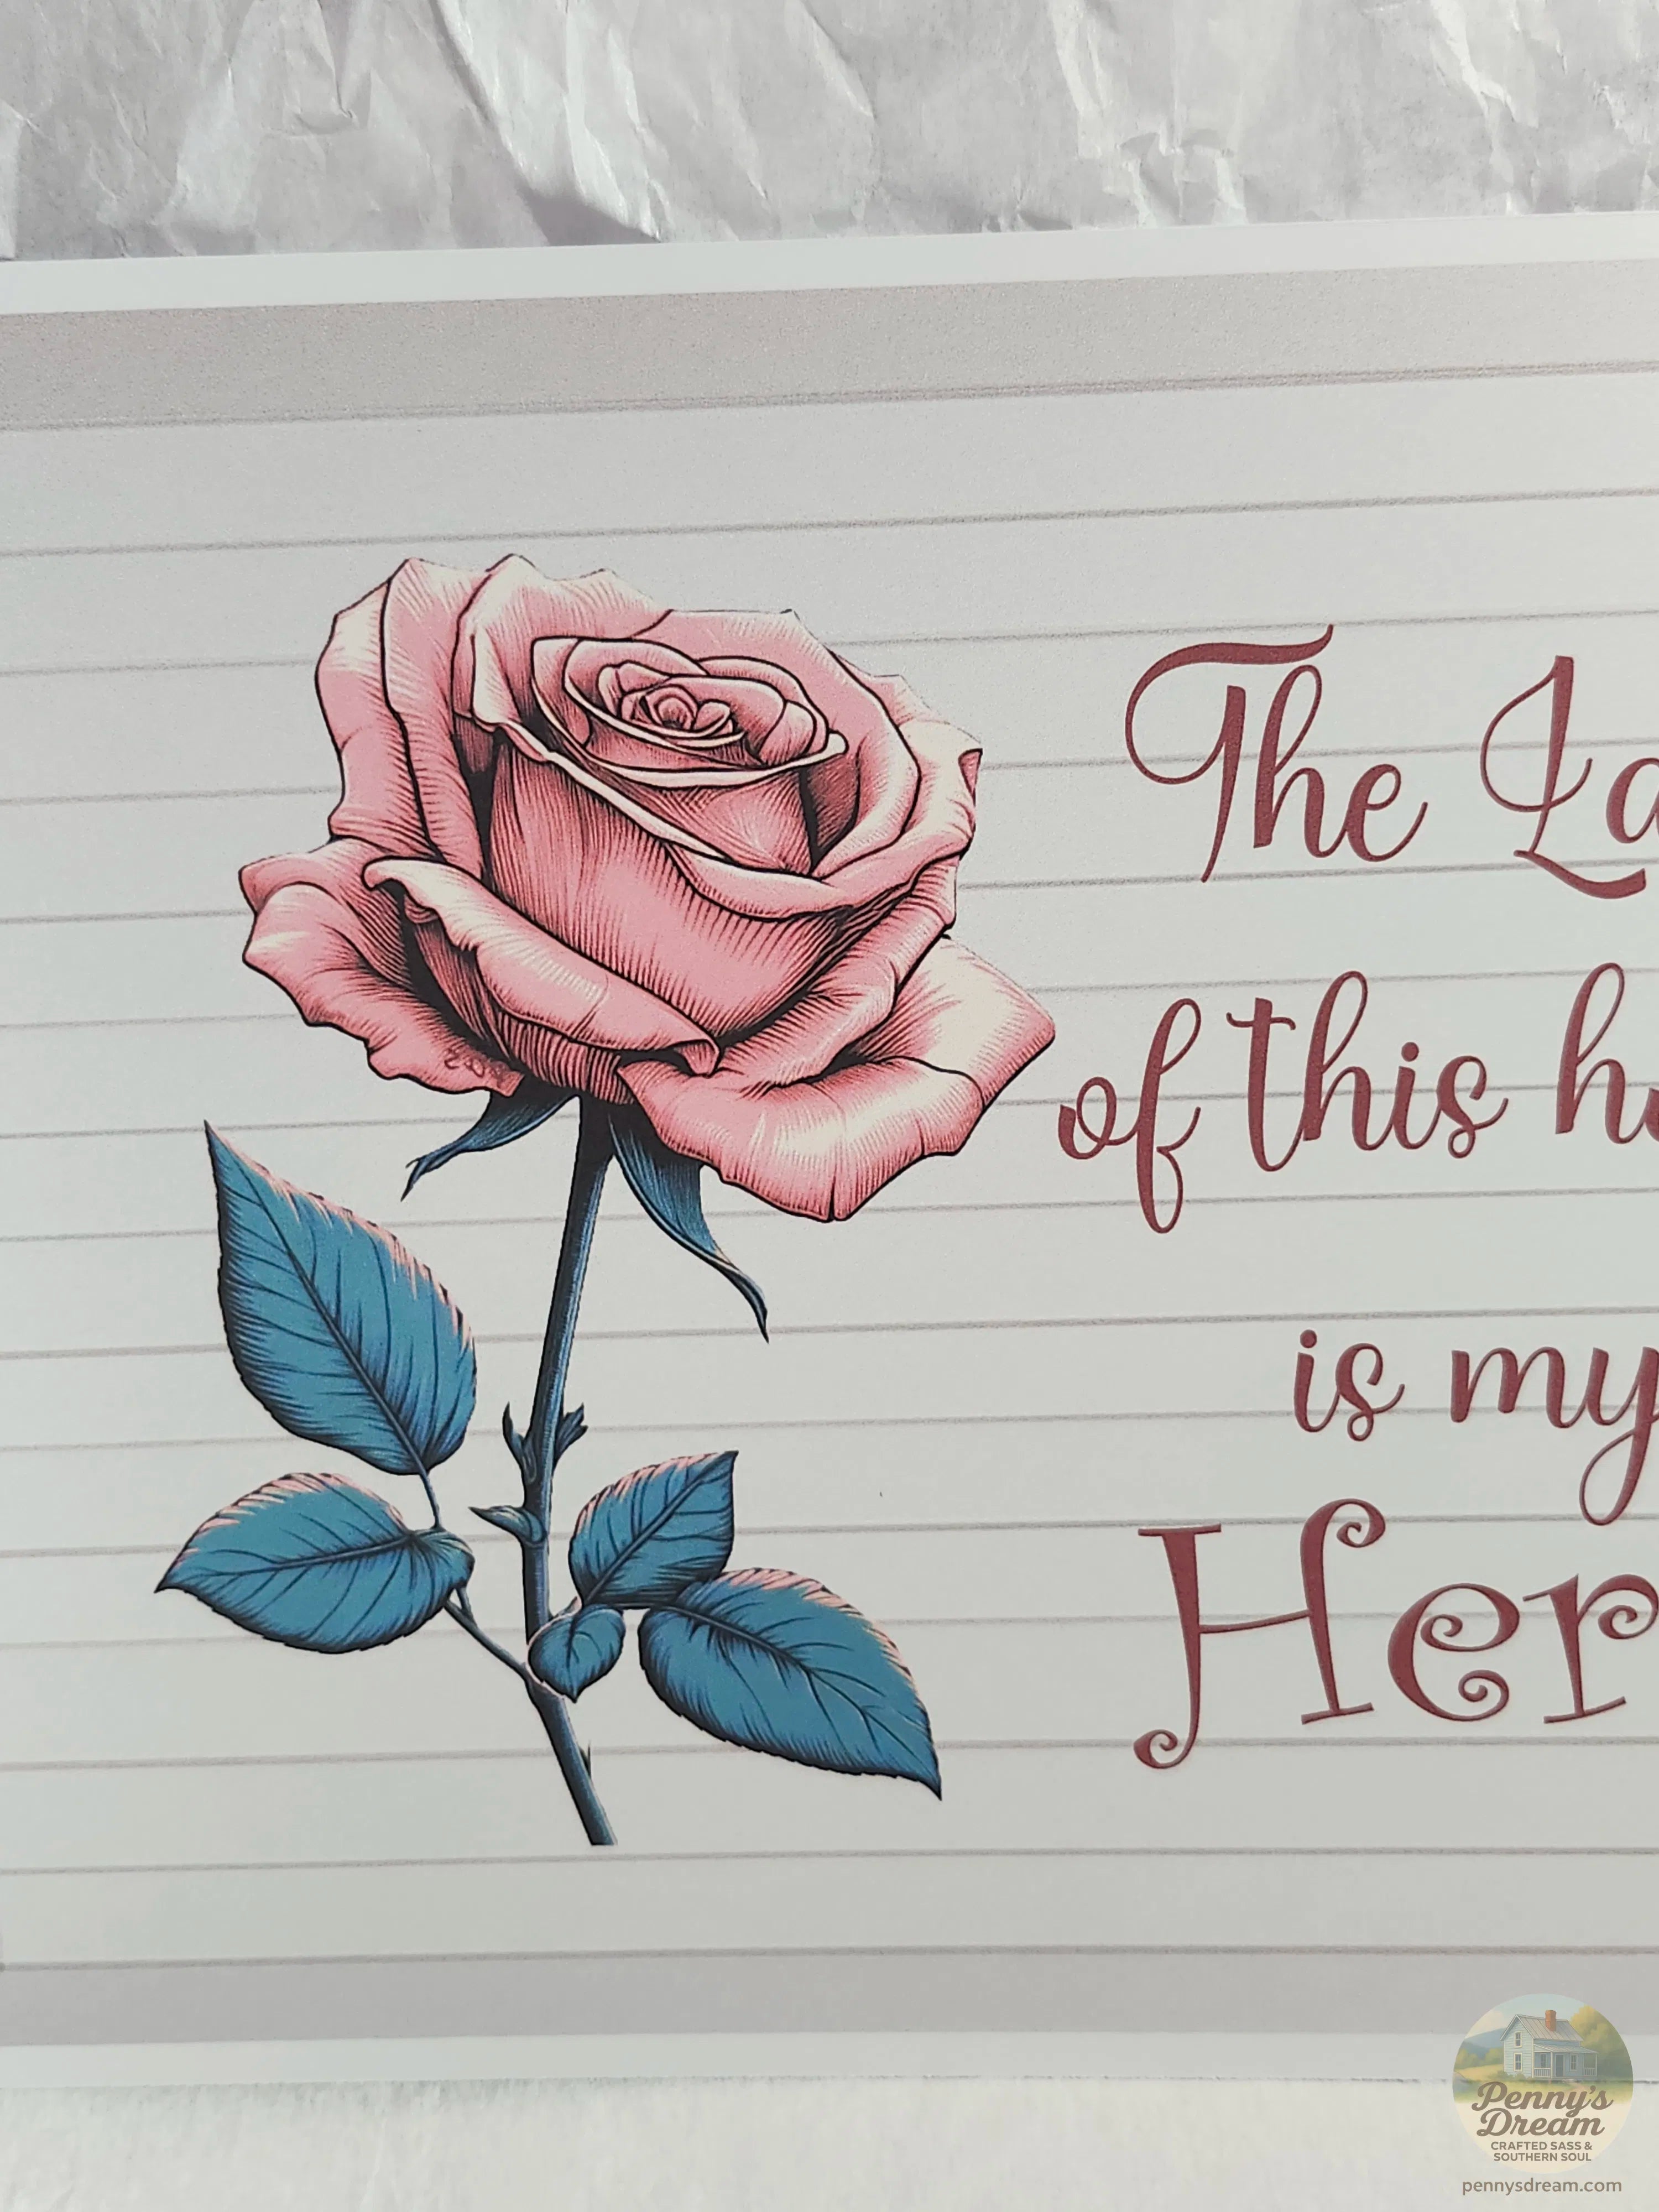 The La
of this h
is my
Her
Penny's
Dream
CRAFTED SASS &
SOUTHERN SOUL
pennysdream.com